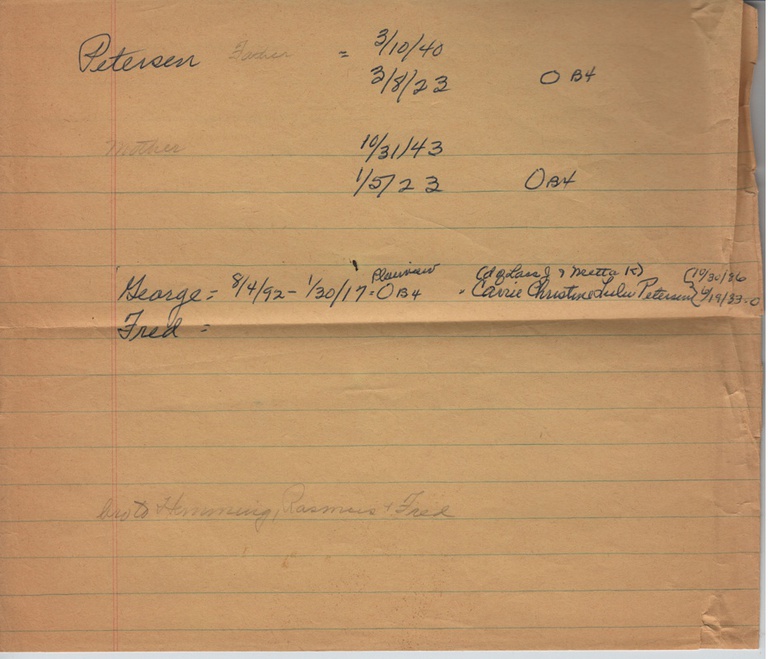 Petersen Father = 3/10/40
3/8/23 O B4
Mother 10/31/43
1/5/23 O B4
Plainview (d of Lars J & Metta K) (10/30/86
George = 8/4/92 - 1/30/17 = O B4 - Carrie Christine Lulu Petersen 19/83 = O
Fred =
bro to Hemming, Rasmus & Fred